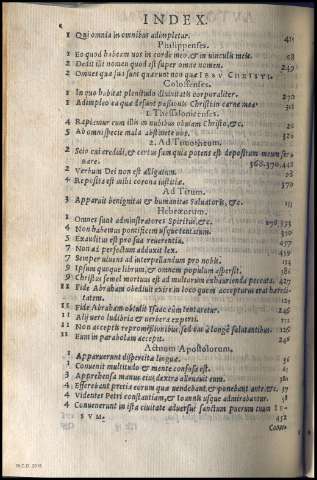 INDEX.
1 Qui omnia in omnibus adimpletur. 411
Philippenses.
1 Eo quod habeam vos in corde meo, & in vinculis meis. 68
2 Dedit illi nomen quod est super omne nomen. 249
2 Omnes quæ sua sunt quærunt non quæ IESV CHRISTI.
Colossenses.
1 In quo habitat plenitudo divinitatis corporaliter. 270
1 Adimpleo ea quæ desunt passionis Christi in carne mea.
1. Thessalonicenses.
4 Rapiemur cum illis in nubibus obviam Christo, &c.
5 Ab omni specie mala abstinete vos. 320
2. Ad Timotheum.
2 Scio cui credidi, & certus sum quia potens est depositum meum servare. 368.370.448
2 Verbum Dei non est alligatum. 98
4 Reposita est mihi corona iustitiæ. 370
Ad Titum.
3 Apparuit benignitas & humanitas Salvatoris, &c.
Hebræorum.
1 Omnes sunt administratores Spiritus, &c.
4 Non habemus pontificem usque tentatum. 350
5 Exauditus est pro sua reverentia. 457
7 Non ad perfectum adduxit lex.
7 Semper vivens ad interpellandum pro nobis.
9 Ipsum quoque librum, & omnem populum aspersit. 382
9 Christus semel mortuus est ad multorum exhaurienda peccata. 427
11 Fide Abraham obedivit exire in locum quem accepturus erat hæreditatem.
11 Fide Abraham obtulit Isaac cum tentaretur. 246
11 Alij vero ludibria & verbera experti. 233
11 Non acceptis repromissionibus, sed eas à longè salutantibus. 126
11 Eum in parabolam accepit. 246
Actuum Apostolorum.
1 Apparuerunt dispertitæ linguæ. 36
2 Convenit multitudo & mente confusa est. 61
3 Apprehensa manu eius dextra allevavit eum. 381
4 Efferebant pretia eorum quæ vendebant, & ponebant ante, &c. 37
4 Videntes Petri constantiam, & Ioannis usque admirabantur. 38
4 Convenerunt in ista civitate adversus sanctum puerum tuum IESVM. 452